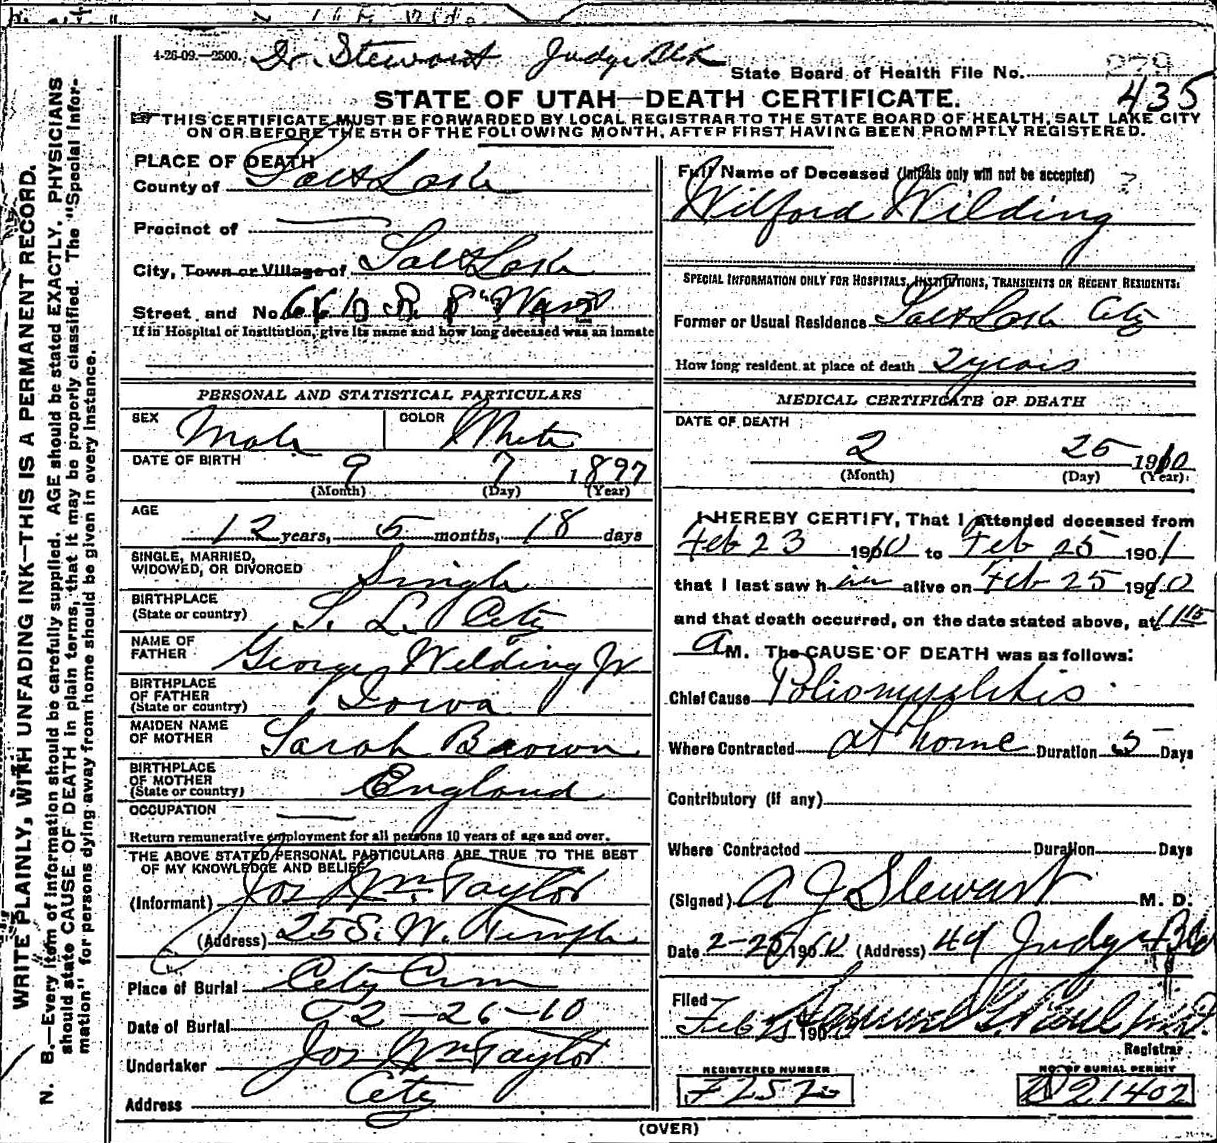 4-26-09.—2500. Dr. Stewart Judge Blk
State Board of Health File No.
435
STATE OF UTAH—DEATH CERTIFICATE.
THIS CERTIFICATE MUST BE FORWARDED BY LOCAL REGISTRAR TO THE STATE BOARD OF HEALTH, SALT LAKE CITY
ON OR BEFORE THE 5TH OF THE FOLLOWING MONTH, AFTER FIRST HAVING BEEN PROMPTLY REGISTERED.
WRITE PLAINLY, WITH UNFADING INK—THIS IS A PERMANENT RECORD.
N. B.—Every item of information should be carefully supplied. AGE should be stated EXACTLY. PHYSICIANS
should state CAUSE OF DEATH in plain terms, that it may be properly classified. The "Special Infor-
mation" for persons dying away from home should be given in every instance.
PLACE OF DEATH
County of Salt Lake
Precinct of
City, Town or Village of Salt Lake
Street and No.
If in Hospital or Institution, give its name and how long deceased was an inmate
PERSONAL AND STATISTICAL PARTICULARS
SEX Male COLOR White
DATE OF BIRTH 9 7 1897
(Month) (Day) (Year)
AGE
12 years, 5 months, 18 days
SINGLE, MARRIED,
WIDOWED, OR DIVORCED Single
BIRTHPLACE
(State or country) S. L. City
NAME OF
FATHER George Wilding Jr
BIRTHPLACE
OF FATHER
(State or country) Iowa
MAIDEN NAME
OF MOTHER Sarah Brown
BIRTHPLACE
OF MOTHER
(State or country) England
OCCUPATION
Return remunerative employment for all persons 10 years of age and over.
THE ABOVE STATED PERSONAL PARTICULARS ARE TRUE TO THE BEST
OF MY KNOWLEDGE AND BELIEF
(Informant) Jos Wm Taylor
(Address) 25 S. W. Temple
Place of Burial City Cem
Date of Burial 2-26-10
Undertaker Jos Wm Taylor
Address City
Full Name of Deceased (Initials only will not be accepted)
Wilford Wilding
SPECIAL INFORMATION ONLY FOR HOSPITALS, INSTITUTIONS, TRANSIENTS OR RECENT RESIDENTS:
Former or Usual Residence Salt Lake City
How long resident at place of death 2 years
MEDICAL CERTIFICATE OF DEATH
DATE OF DEATH
2 25 1910
(Month) (Day) (Year)
I HEREBY CERTIFY, That I attended deceased from
Feb 23 1910 to Feb 25 1901
that I last saw him alive on Feb 25 1910
and that death occurred, on the date stated above, at 1 15
A M. The CAUSE OF DEATH was as follows:
Chief Cause Poliomyelitis
Where Contracted at home Duration 5 Days
Contributory (if any)
Where Contracted Duration Days
(Signed) A J Stewart M. D.
Date 2-25 1910 (Address) 49 Judge Bld
Filed
Feb 25 190 Samuel G. Paul
Registrar
REGISTERED NUMBER NO. OF BURIAL PERMIT
F2572 D21402
(OVER)